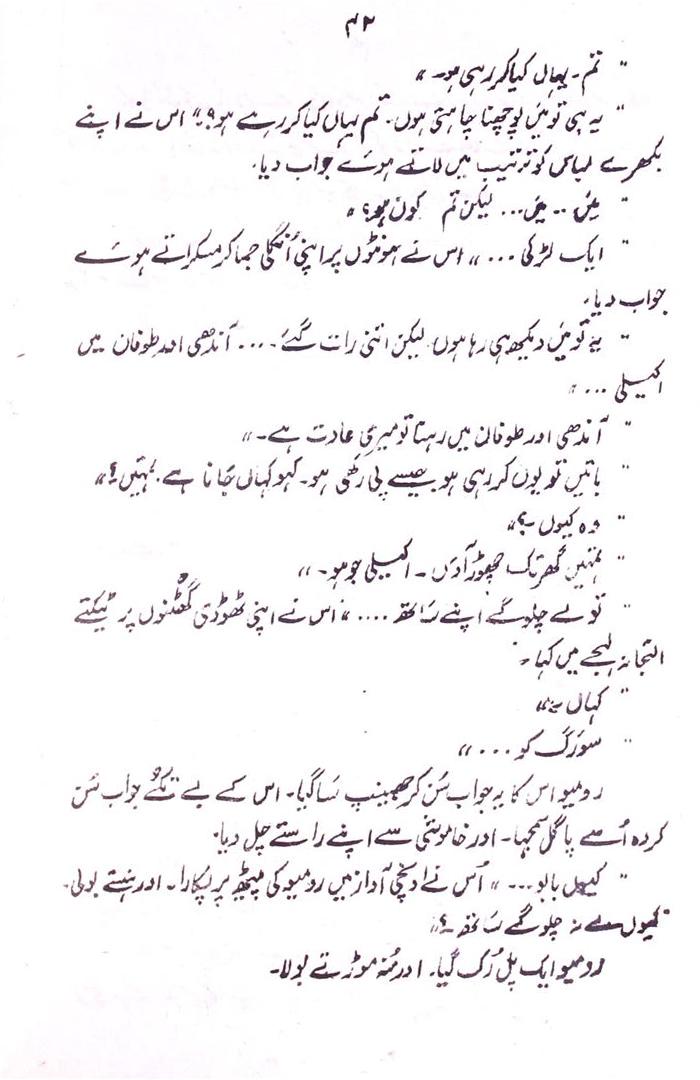 ۴۲
" تم ۔ یہاں کیا کر رہی ہو ۔ "
" یہ ہی تو میں پوچھنا چاہتی ہوں ۔ تم یہاں کیا کر رہے ہو ؟ ۔ " اس نے اپنے
بکھرے لباس کو ترتیب میں لاتے ہوئے جواب دیا ۔
" میں ۔۔ میں ۔۔۔ لیکن تم کون ہو ؟ "
" ایک لڑکی ۔۔۔ " اس نے ہونٹوں پر اپنی اُنگلی جما کر مسکراتے ہوئے
جواب دیا ۔
" یہ تو میں دیکھ ہی رہا ہوں لیکن اتنی رات گئے ۔۔۔۔ آندھی اور طوفان میں
اکیلی ۔۔۔ "
" آندھی اور طوفان میں رہنا تو میری عادت ہے ۔ "
" باتیں تو یوں کر رہی ہو جیسے پی رکھی ہو ۔ کہو کہاں جانا ہے تمہیں ؟ "
" وہ کیوں ۔ ؟ "
" تمہیں گھر تک چھوڑ آؤں ۔ اکیلی جو ہو ۔ "
" تو لے چلو گے اپنے ساتھ ۔۔۔۔ " اس نے اپنی ٹھوڑی گھٹنوں پر ٹیکتے
التجانہ لہجے میں کہا ۔
" کہاں ۔ "
" سورگ کو ۔۔۔ "
رومیو اس کا یہ جواب سُن کر جھینپ سا گیا ۔ اس کے بے تکے جواب سُن
کر وہ اُسے پاگل سمجھا ۔ اور خاموشی سے اپنے راستے چل دیا ۔
" کیوں بابو ۔۔۔ " اُس نے اونچی آواز میں رومیو کی پیٹھ پر پکارا ۔ اور ہنستے بولی ۔
کیوں نہ چلو گے ساتھ ۔ ؟ "
رومیو ایک پل رُک گیا ۔ اور مُنہ موڑتے بولا ۔